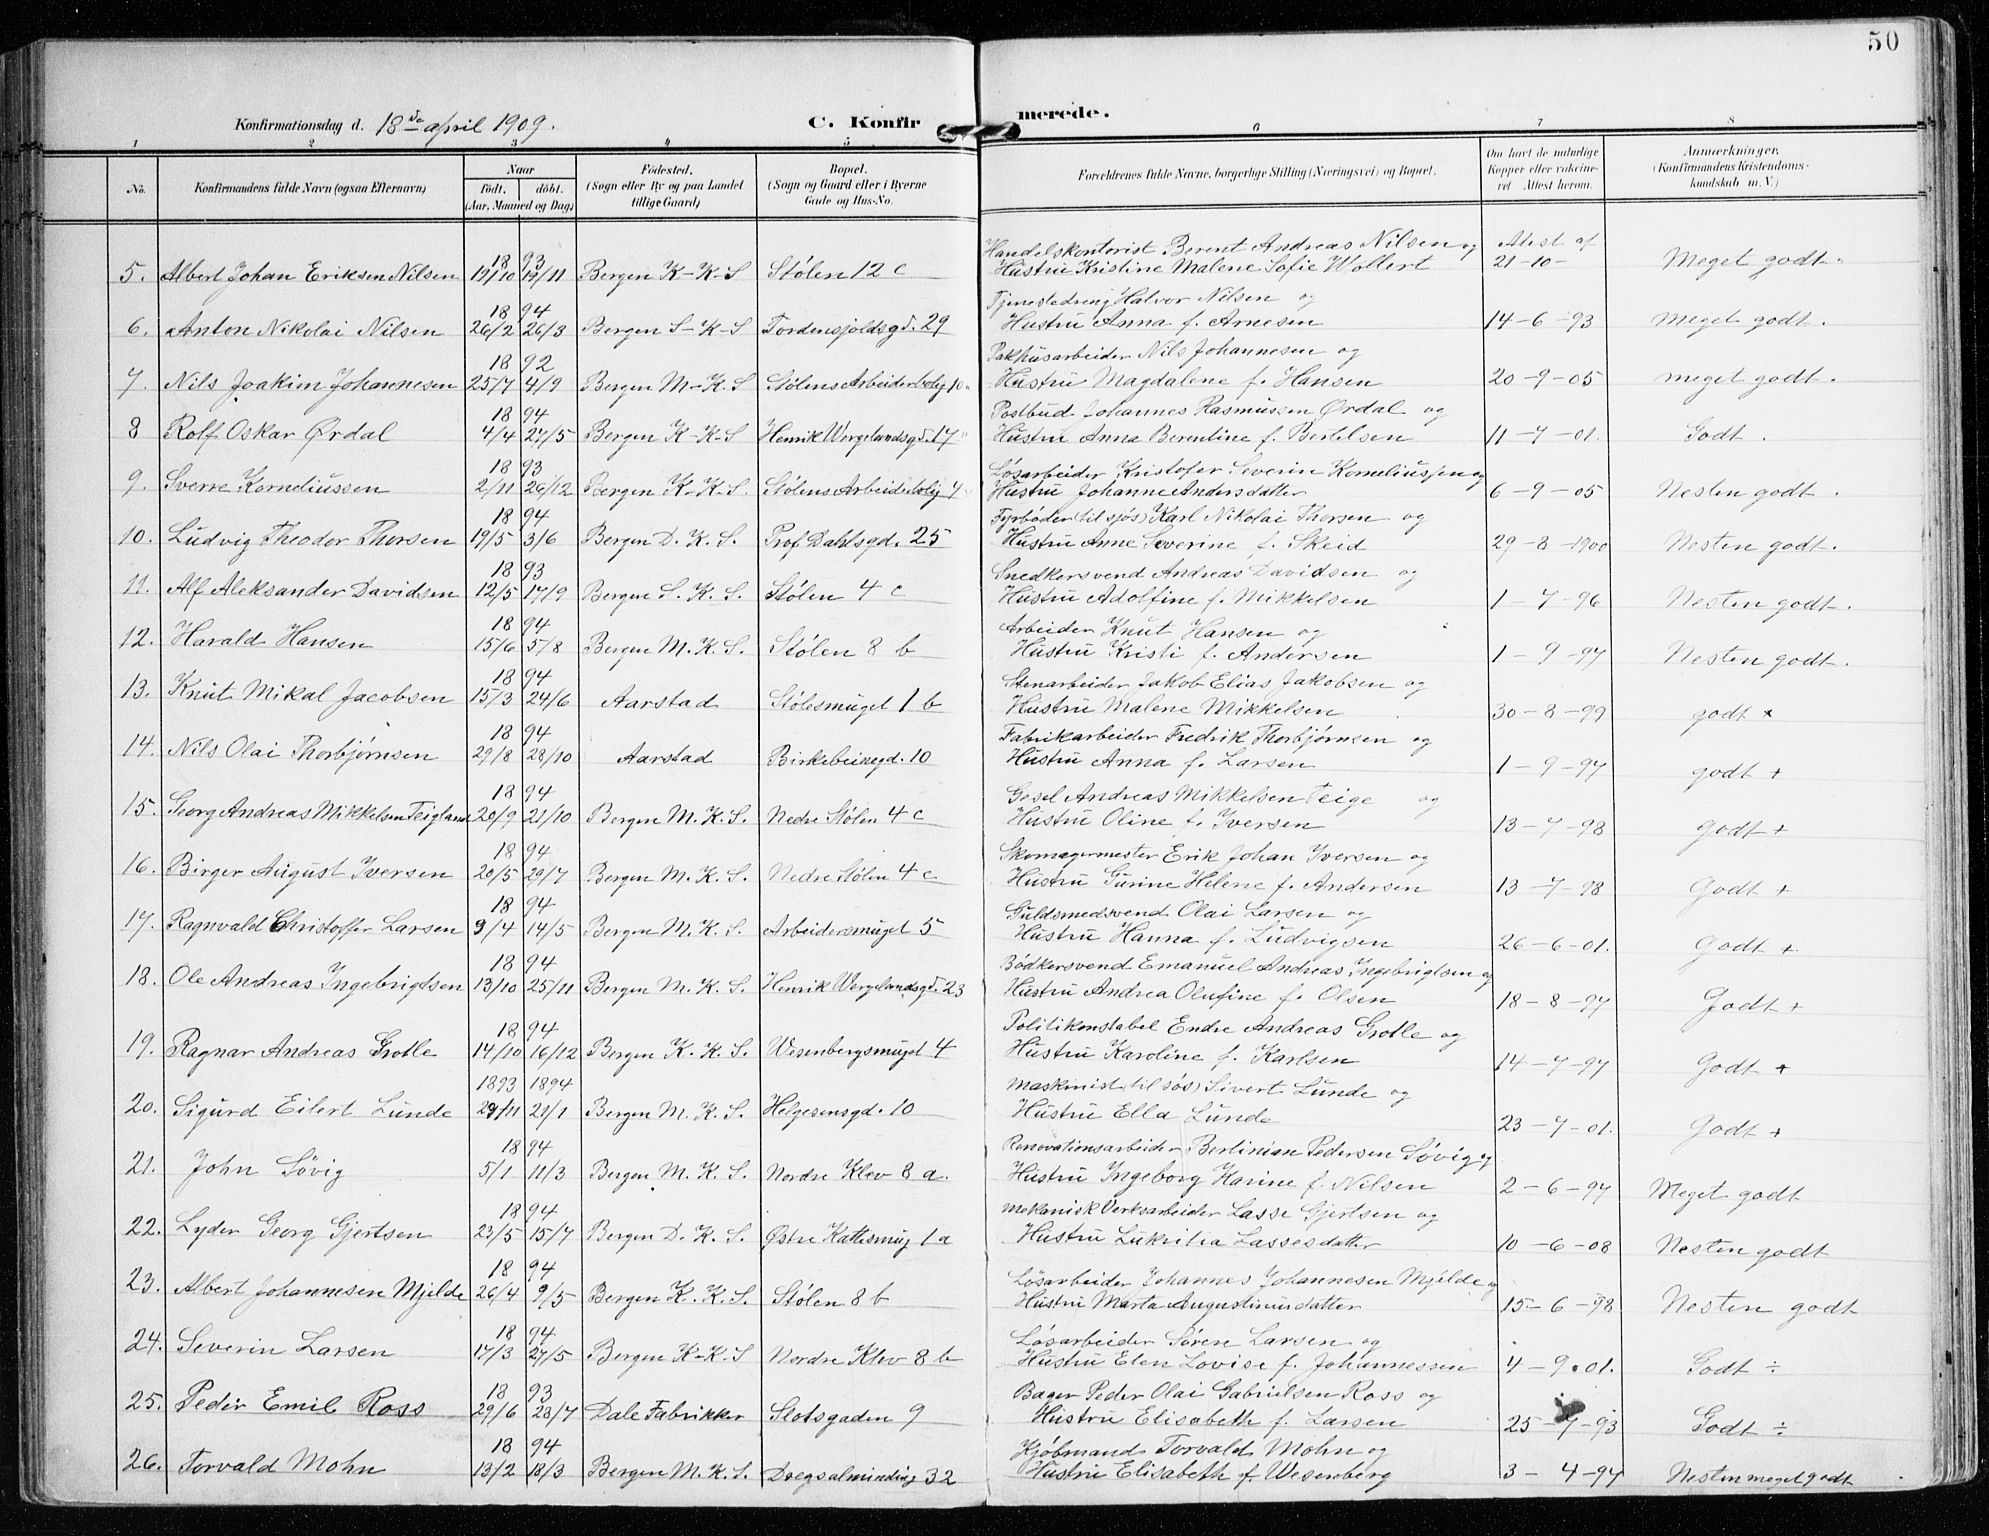 50
Konfirmationsdag d. 18de april 1909.
C. Konfirmerede.
1 2 3 4 5 6 7 8
No.
Konfirmandens fulde Navn (ogsaa Efternavn)
Naar
født. døbt.
(Aar, Maaned og Dag)
Fødested.
(Sogn eller By og paa Landet
tillige Gaard)
Bopæl.
(Sogn og Gaard eller i Byerne
Gade og Hus-No.
Forældrenes fulde Navne, borgerlige Stilling (Næringsvei) og Bopæl.
Om havt de naturlige
Kopper eller vakcine-
ret. Attest herom.
Anmærkninger.
(Konfirmandens Kristendoms-
kundskab m. V.)
18 93 Handelskontorist Berent Andreas Nilsen og Atest af
5. Albert Johan Eriksen Nilsen 19/10 19/11 Bergen K-K-S Stølen 12 c Hustru Kristine Malene Sofie Wollert 21-10- Meget godt.
18 94 Tjenestedreng Halvor Nilsen og
6. Anton Nikolai Nilsen 26/2 26/3 Bergen S-K-S Tordensjoldsgd. 29 Hustru Anna f. Arnesen 14-6-93 Meget godt.
18 92 Pakhusarbeider Nils Johannesen og
7. Nils Joakim Johannesen 25/7 4/9 Bergen M-K.S Stølens Arbeiderbolig 10 Hustru Magdalene f. Hansen 20-9-05 meget godt.
18 94 Postbud Johannes Rasmussen Ørdal og
8 Rolf Oskar Ørdal 4/4 27/5 Bergen K-K-S Henrik Wergelandsgd. 17 Hustru Anna Berentine f. Bertelsen 11-7-01. Godt.
18 93 Løsarbeider Kristofer Severin Korneliussen og
9. Sverre Korneliussen 2/11 26/12 Bergen K-K-S. Stølens Arbeiderbolig 4 Hustru Johanne Andersdatter 6-9-05 Nesten godt.
18 94 Fyrbøder (til sjøs) Karl Nikolai Thorsen og
10. Ludvig Theodor Thorsen 19/5 3/6 Bergen D. K. S. Prof Dahlsgd. 25 Hustru Anne Severine f. Skeid 29-8-1900 Nesten godt.
18 93 Snedkersvend Andreas Davidsen og
11. Alf Aleksander Davidsen 12/5 17/9 Bergen S. K. S. Stølen 4 c Hustru Adolfine f. Mikkelsen 1-7-96 Nesten godt.
18 94 Arbeider Knut Hansen og
12. Harald Hansen 15/6 5/8 Bergen M. K. S. Stølen 8 b Hustru Kristi f. Andersen 1-9-97 Nesten godt.
18 94 Stenarbeider Jakob Elias Jakobsen og
13. Knut Mikal Jacobsen 15/3 24/6 Aarstad Stølesmuget 1 b Hustru Malene Mikkelsen 30-8-99 godt +
18 94 Fabrikarbeider Fredrik Thorbjørnsen og
14. Nils Olai Thorbjørnsen 29/8 28/10 Aarstad Birkebeinegd. 10 Hustru Anna f. Larsen 1-9-97 godt +
18 94 Gesel Andreas Mikkelsen Teige og
15. Georg Andreas Mikkelsen Teigland 20/9 21/10 Bergen M. K. S. Nedre Stølen 4 c Hustru Oline f. Iversen 13-7-98 Godt +
18 94 Skomagermester Erik Johan Iversen og
16. Birger August Iversen 20/5 29/7 Bergen M. K. S. Nedre Stølen 4 c Hustru Gurine Helene f. Andersen 13-7-98 Godt +
18 94 Guldsmedsvend Olai Larsen og
17. Ragnvald Christoffer Larsen 9/4 14/5 Bergen M. K. S. Arbeidersmuget 5 Hustru Hanna f. Ludvigsen 26-6-01. Godt +
18 94 Bødkersvend Emanuel Andreas Ingebrigtsen og
18. Ole Andreas Ingebrigtsen 13/10 25/11 Bergen M. K. S. Henrik Wergelandsgd. 23 Hustru Andrea Olufine f. Olsen 18-8-97 Godt +
18 94 Politikonstabel Endre Andreas Grotle og
19. Ragnar Andreas Grotle 14/10 16/12 Bergen K. K. S. Wesenbergsmuget 4 Hustru Karoline f. Karlsen 14-7-97 Godt +
1893 1894 Maskinist (til søs) Sivert Lunde og
20. Sigurd Eilert Lunde 29/11 21/1 Bergen M. K. S. Helgesensgd. 10 Hustru Ella Lunde 23-7-01. Godt +
18 94 Renovationsarbeider Berlinian Pedersen Søvig og
21. John Søvig 5/1 11/3 Bergen M. K. S. Nordre Klev 8 a. Hustru Ingeborg Karine f. Nilsen 2-6-97 Meget godt
18 94 Mekanisk Verksarbeider Lasse Gjertsen og
22. Lyder Georg Gjertsen 23/5 15/7 Bergen D. K. S. Østre Kattesmug 1 a Hustru Lukritia Lassesdatter 10-6-08 Nesten godt
18 94 Løsarbeider Johannes Johannesen Mjelde og
23. Albert Johannesen Mjelde 26/4 9/5 Bergen K. K. S. Stølen 8 b Hustru Marta Augustinusdatter 15-6-98 Nesten godt
18 94 Løsarbeider Søren Larsen og
24. Severin Larsen 17/3 27/5 Bergen K-K. S Nordre Klev 8 b Hustru Elen Lovise f. Johannessen 4-9-01. Godt ÷
18 93 Bager Peder Olai Gabrielsen Ross og
25. Peder Emil Ross 29/6 28/7 Dale Fabrikker Slotsgaden 9 Hustru Elisabeth f. Larsen 25-7-93 Godt ÷
18 94 Kjøbmand Torvald Mohn og
26. Torvald Mohn 13/2 18/3 Bergen M. K. S. Dregsalminding 32 Hustru Elisabeth f. Wesenberg 3-4-97 Nesten meget godt